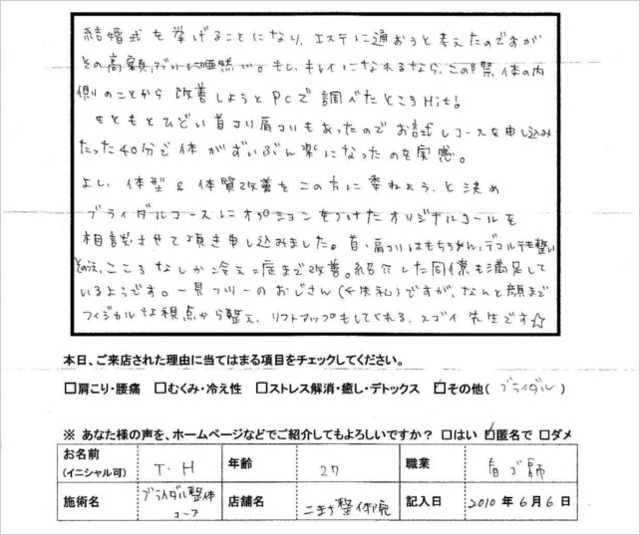 結婚式を挙げることになり、エステに通おうと考えたのですが
その高額ぶりに唖然で。もし、キレイになれるなら、この際、体の内
側のことから改善しようとPCで調べたところHit!
もともとひどい首コリ肩コリもあったのでお試しコースを申し込み
たった40分で体がずいぶん楽になったのを実感。
よし、体型&体質改善をこの方に委ねよう、と決め
ブライダルコースにオプションをつけたオリジナルコースを
相談させて頂き申し込みました。首、肩コリはもちろん、デコルテも整い
そのうえ、こころなしか冷え症まで改善。紹介した同僚も満足して
いるようです。一見フツーのおじさん(←失礼)ですが、なんと顔まで
フィジカルな視点から整え、リフトアップもしてくれる、スゴイ先生です☆
本日、ご来店された理由に当てはまる項目をチェックしてください。
□肩こり・腰痛 □むくみ・冷え性 □ストレス解消・癒し・デトックス ☑その他( ブライダル )
※ あなた様の声を、ホームページなどでご紹介してもよろしいですか? □はい ☑匿名で □ダメ
お名前 (イニシャル可) T・H 年齢 27 職業 看ゴ師
施術名 ブライダル整体コース 店舗名 こまち整体院 記入日 2010年6月6日